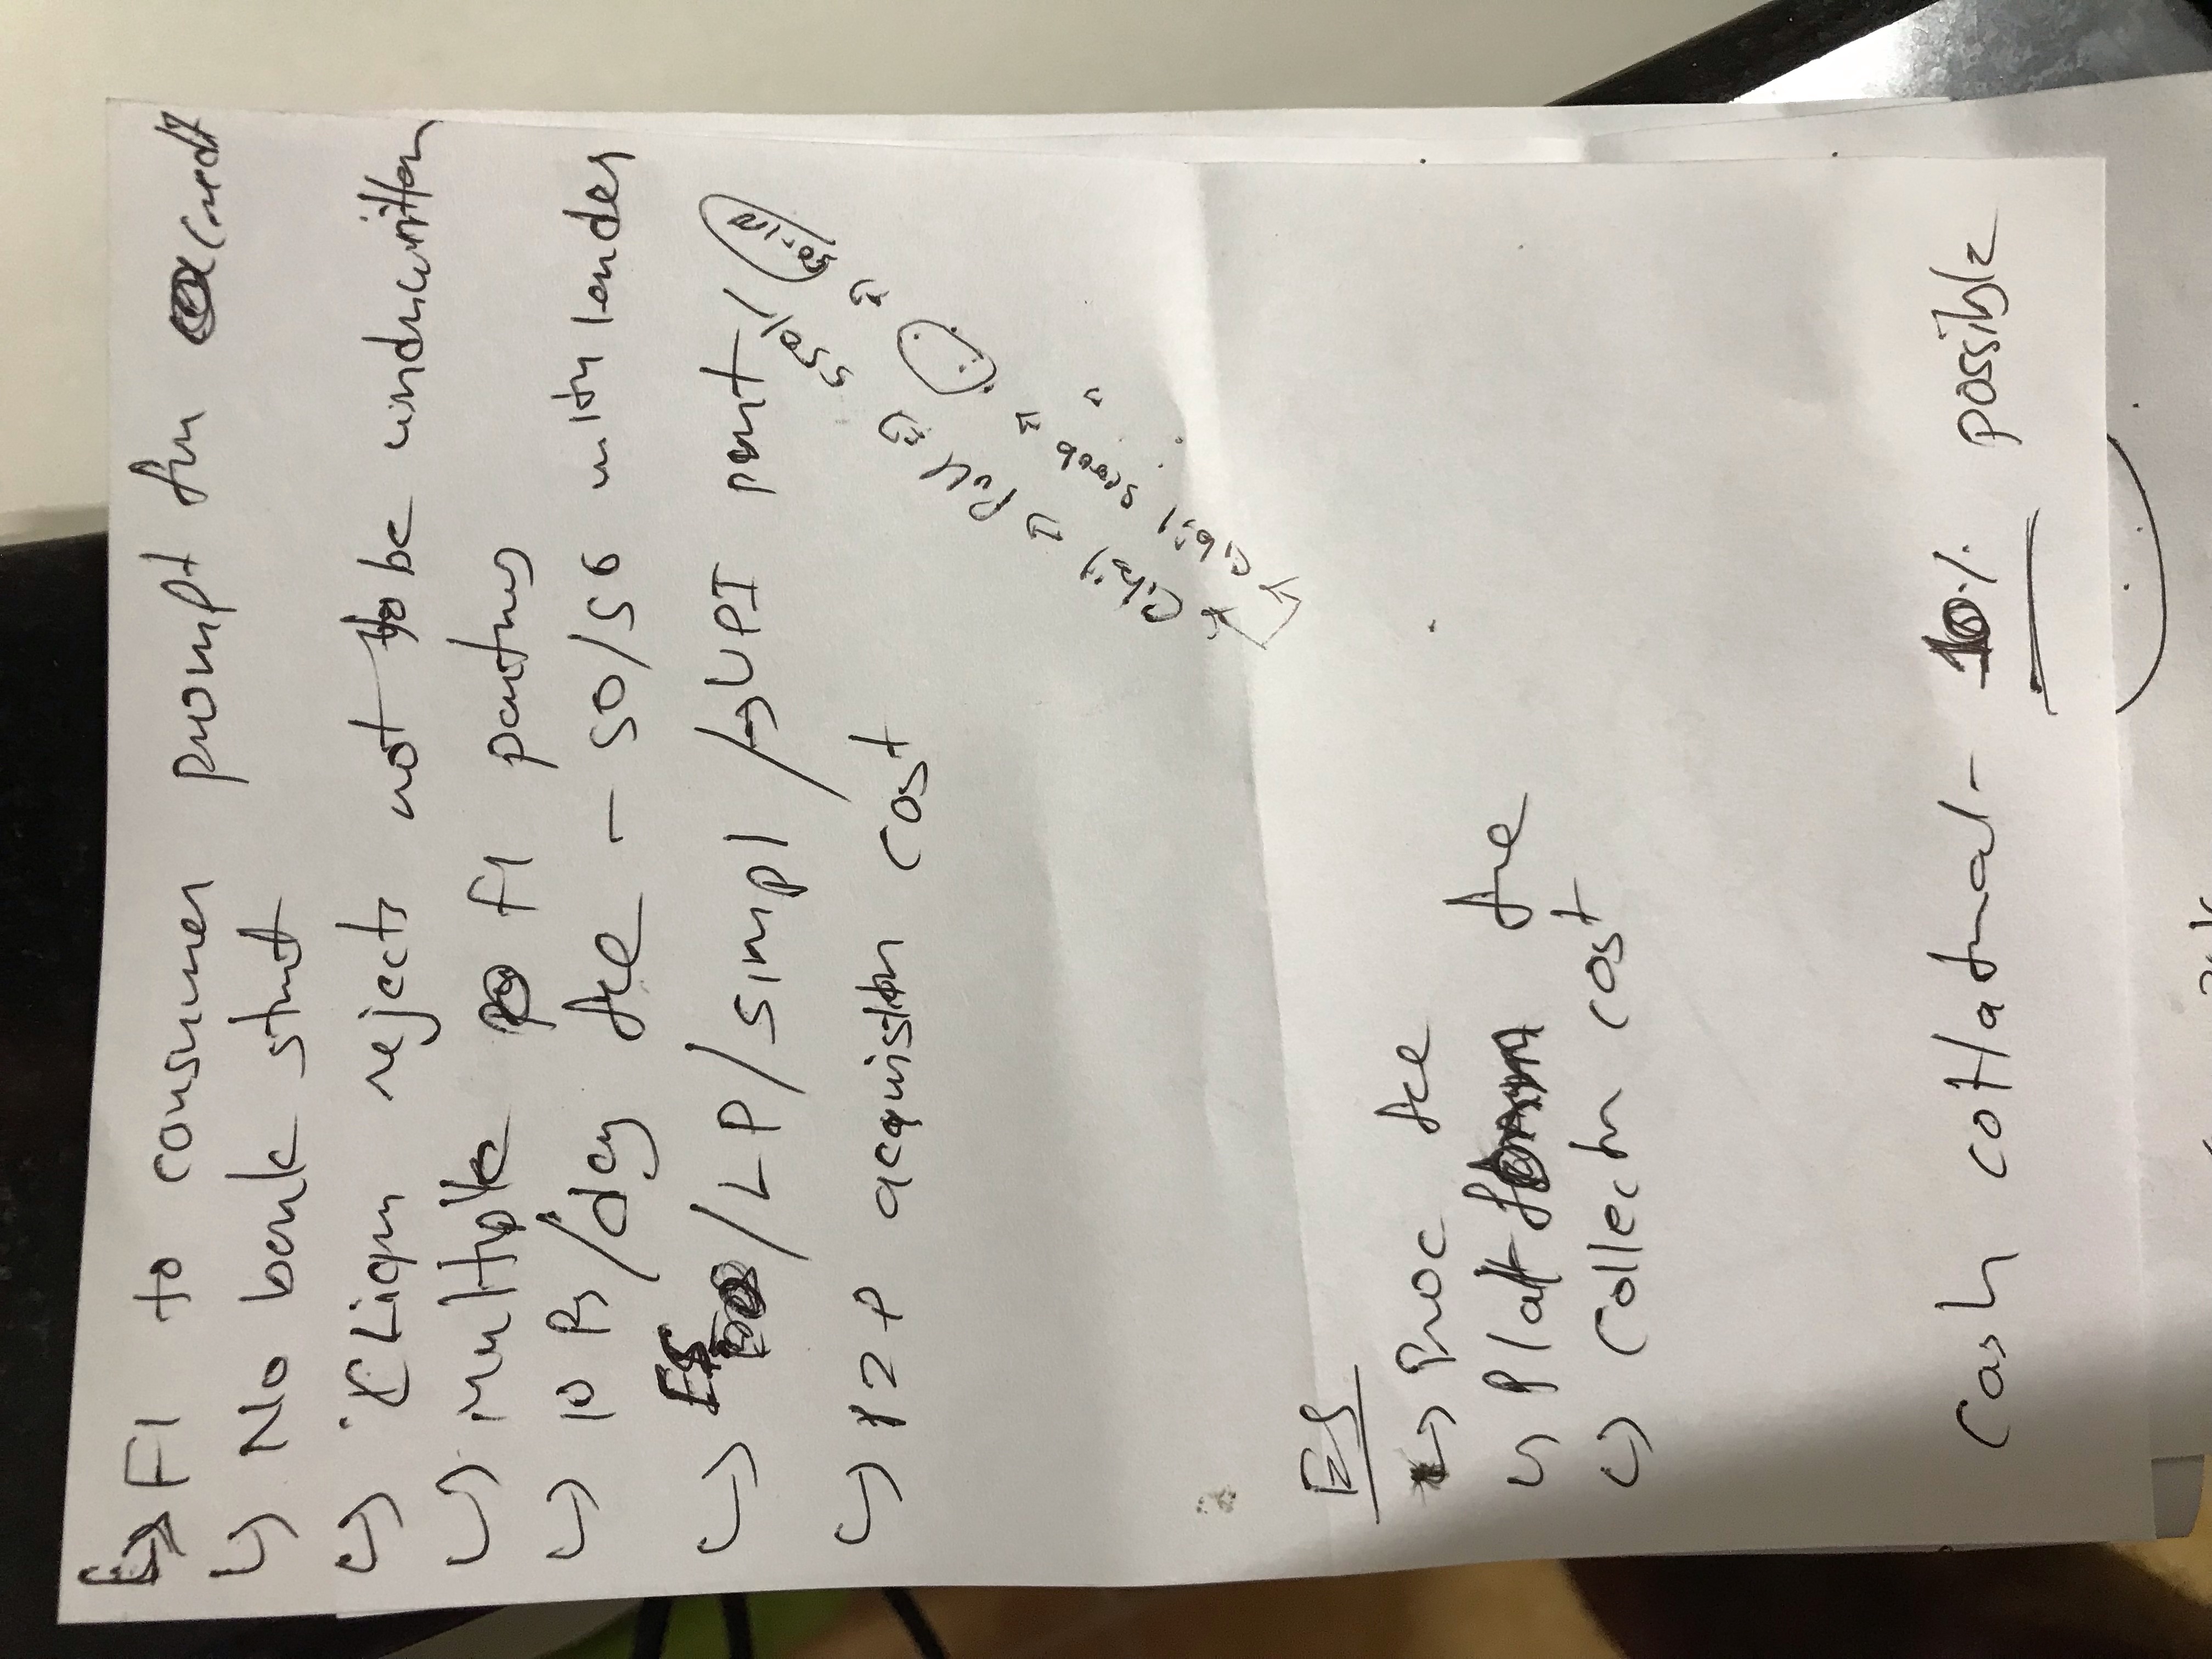 ↳ FI to consumer prompt for credit
↳ No bank stmt
↳ rejects not to be underwritten
↳ Multiple FI partners
↳ 10 Rs/day fee - 50/50 with lender
↳ ES/LP/simpl /→ UPI
↳ acquistn cost
→ Cibil ⇒ Pull ⇒ 550/-
↳ Cibil ⇒ ⇒ 50-100
ES
↳ Proc fee
↳ Platform fee
↳ Collectn cost
Cash collatral - 10% possible